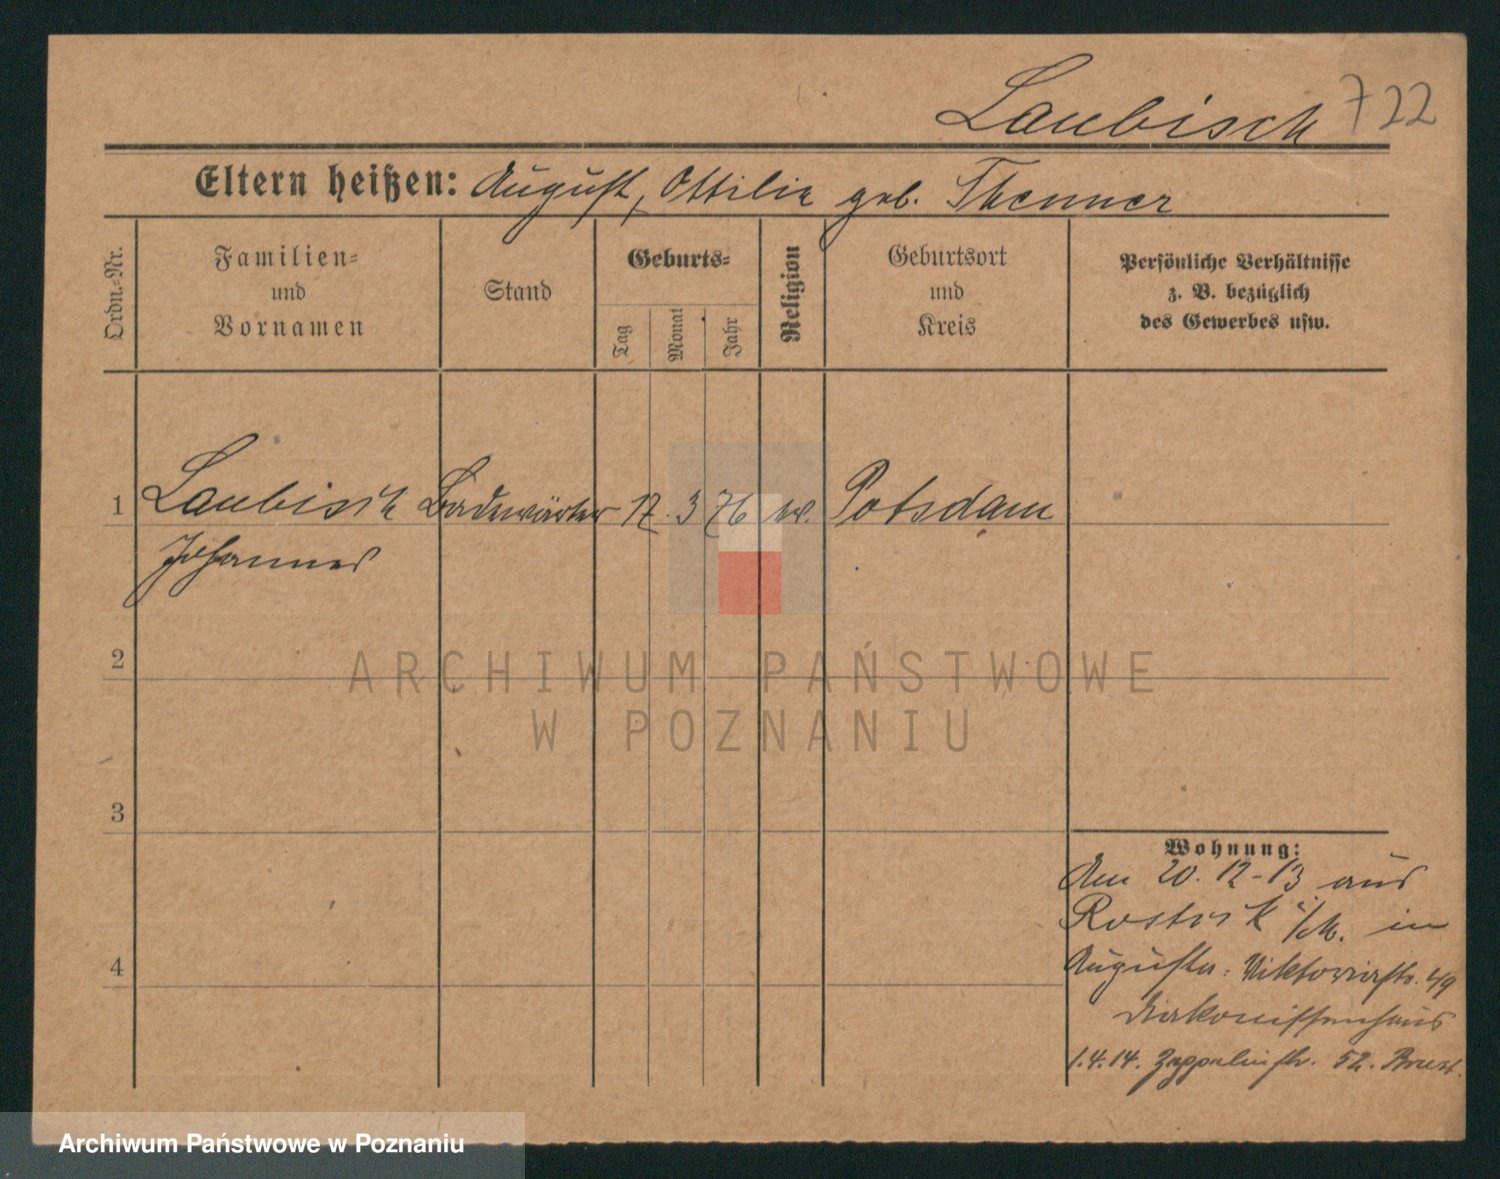 Laubisch 722
Eltern heißen: August, Ottilie geb. Thenner
Ordn.-Nr.
Familien-
und
Vornamen
Stand
Geburts-
Tag
Monat
Jahr
Religion
Geburtsort
und
Kreis
Persönliche Verhältnisse
z. B. bezüglich
des Gewerbes usw.
1 Laubisch Badewärter 17. 3 76 ev. Potsdam
Johannes
2
3
4
Wohnung:
Am 20. 12-13 aus
Rostock i/M. in
Augusta-Viktoriastr. 49
Diakonissenhaus
1.4.14. Zeppelinstr. 52.
ARCHIWUM PAŃSTWOWE
W POZNANIU
Archiwum Państwowe w Poznaniu